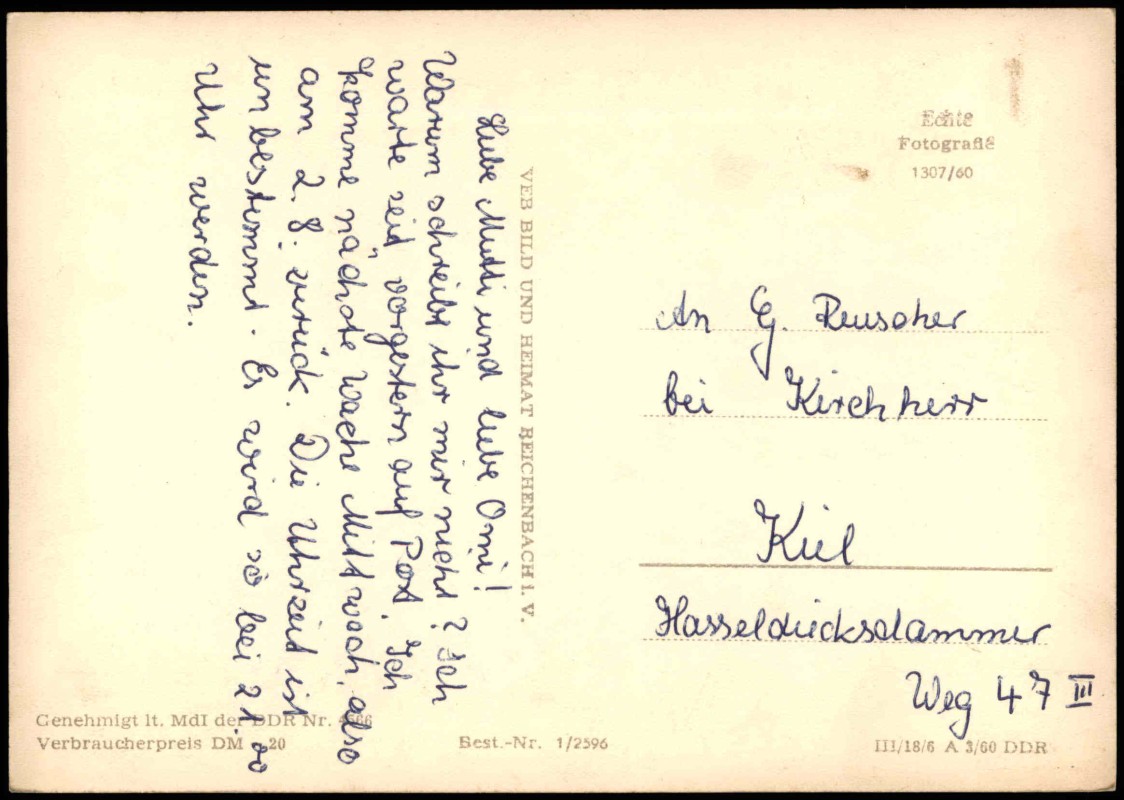 Liebe Mutti und liebe Omi!
Warum schreibt ihr mir nicht? Ich
warte seit vorgestern auf Post. Ich
komme nächste Woche Mittwoch, also
am 2. 8. zurück. Die Uhrzeit ist
unbestimmt. Es wird so bei 21.00
Uhr werden.
VEB BILD UND HEIMAT REICHENBACH I. V.
Echte
Fotografie
1307/60
An G. Reuscher
bei Kirchherr
Kiel
Hasseldieksdammer
Weg 47 III
Genehmigt lt. MdI der DDR Nr.
Verbraucherpreis DM -,20
Best.-Nr. 1/2596
III/18/6 A 3/60 DDR